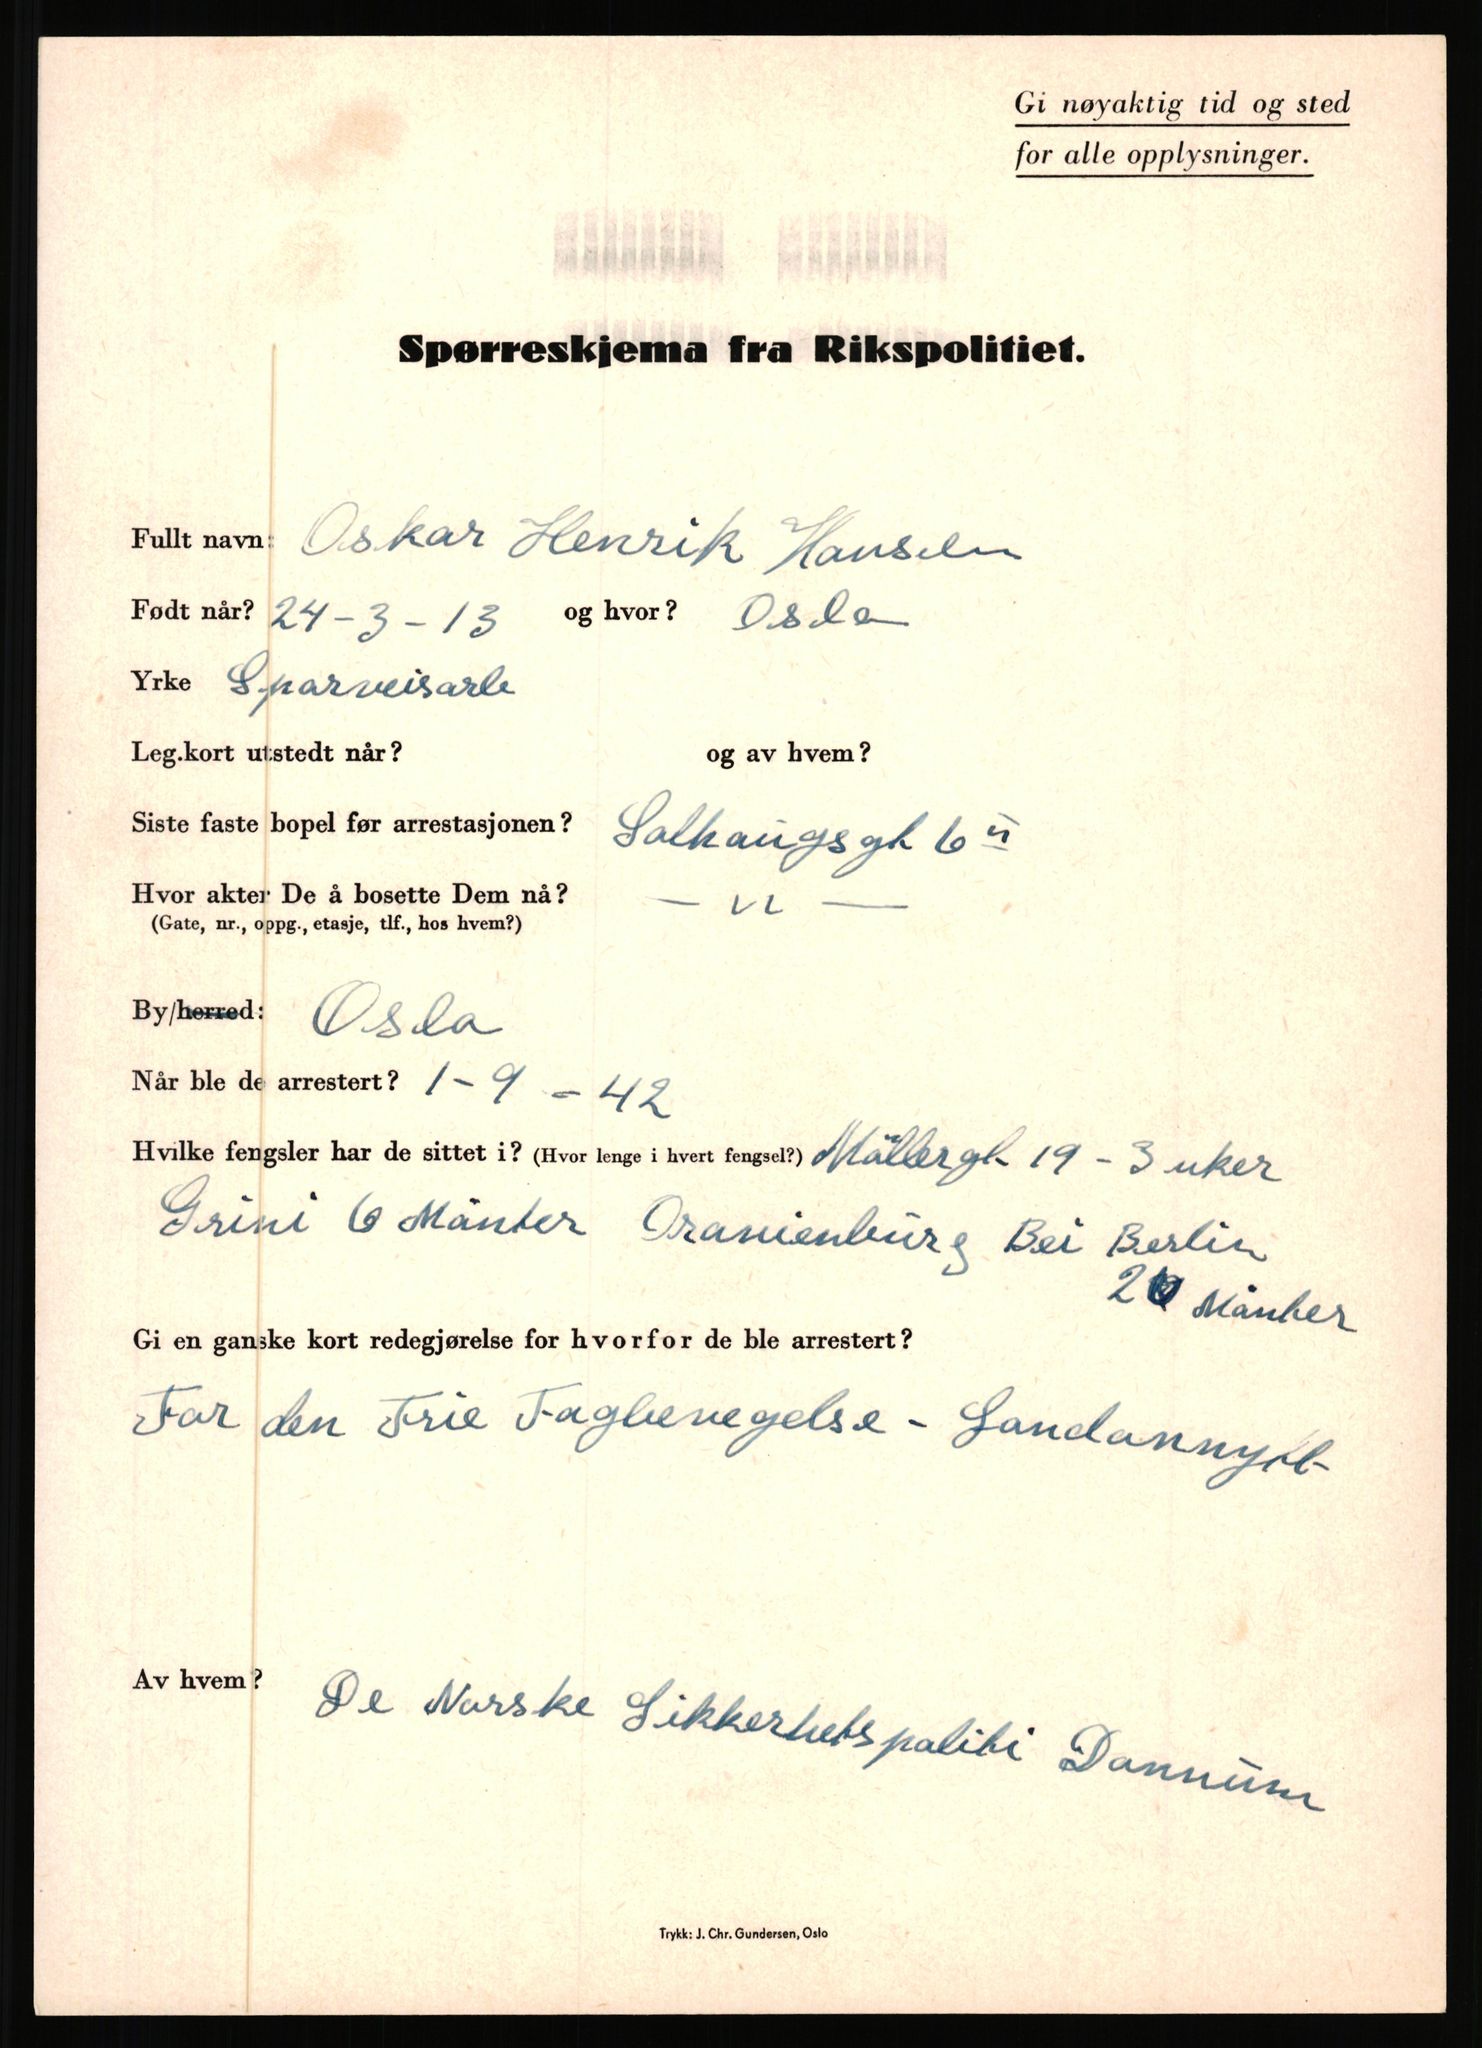 Gi nøyaktig tid og sted
for alle opplysninger.
Spørreskjema fra Rikspolitiet.
Fullt navn: Oskar Henrik Hansen
Født når? 24-3-13 og hvor? Oslo
Yrke Sporveisarb
Leg.kort utstedt når? og av hvem?
Siste faste bopel før arrestasjonen? Solhaugsgt 6 II
Hvor akter De å bosette Dem nå? — " —
(Gate, nr., oppg., etasje, tlf., hos hvem?)
By/herred: Oslo
Når ble de arrestert? 1-9-42
Hvilke fengsler har de sittet i? (Hvor lenge i hvert fengsel?) Møllergt 19 - 3 uker
Grini 6 Månter Oranienburg Bei Berlin
Månter
Gi en ganske kort redegjørelse for hvorfor de ble arrestert?
For den Frie Fagbevegelse - Londonnytt
Av hvem? De Norske Sikkerhetspoliti Dønnum
Trykk: J. Chr. Gundersen, Oslo